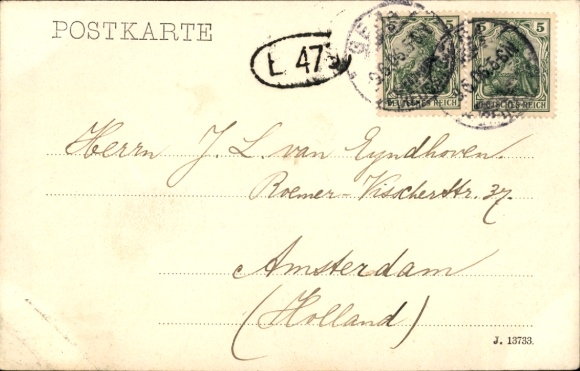 POSTKARTE
L 473
5 5
DEUTSCHES REICH DEUTSCHES REICH
Herrn J. L. van Eyndhoven.
Roemer-Visscherstr. 37.
Amsterdam
(Holland)
J. 13733.